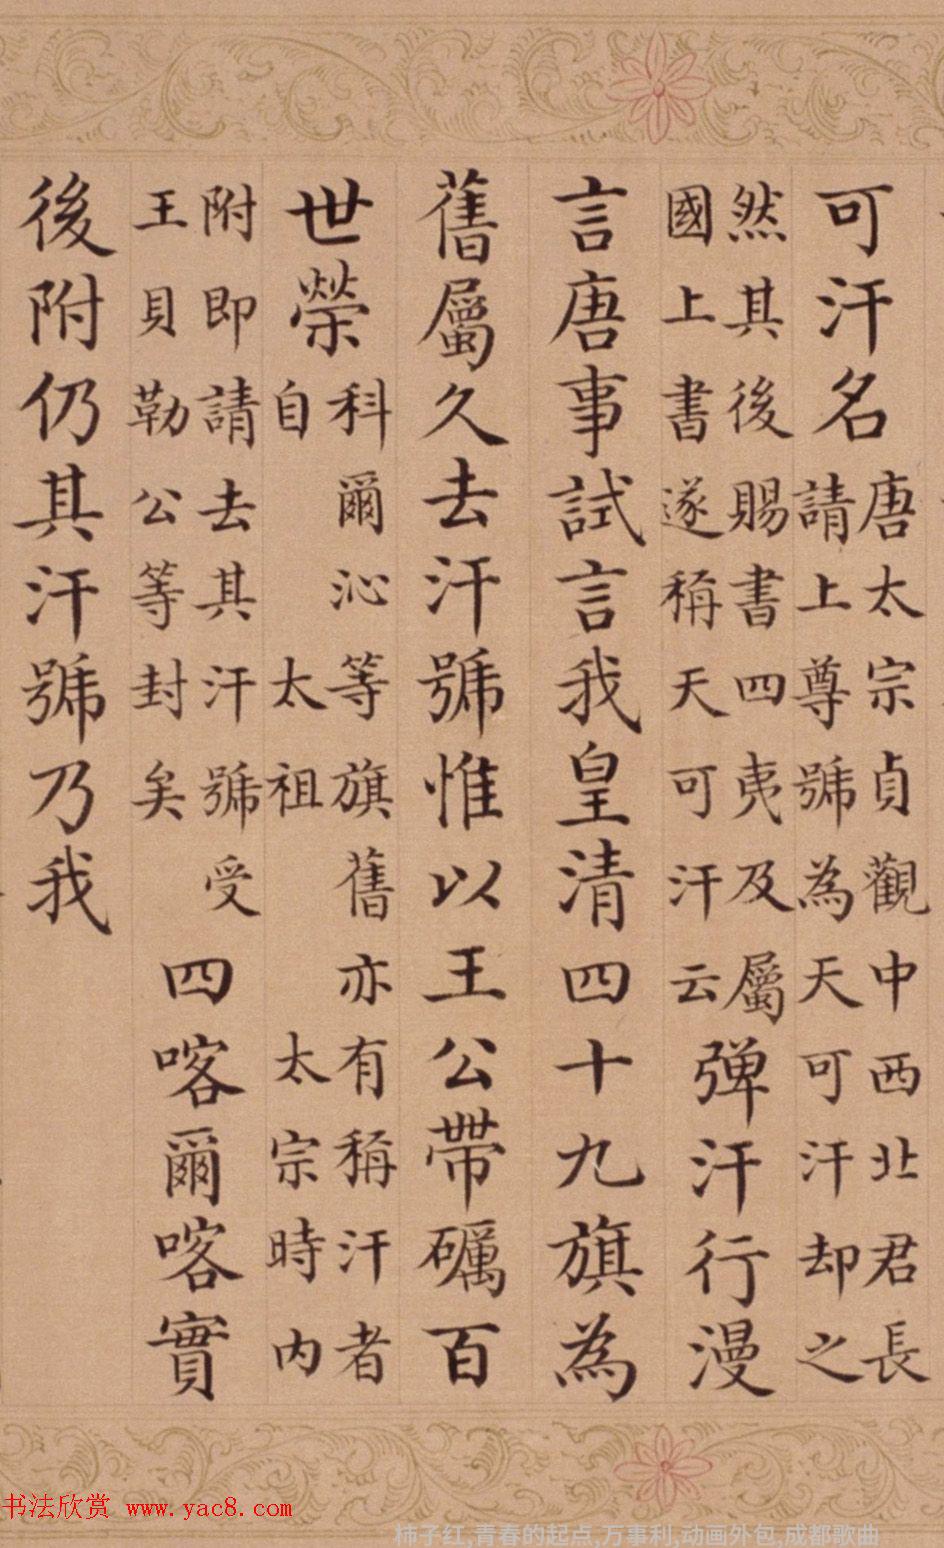 可汗名
唐太宗貞觀中西北君長
請上尊號為天可汗却之
然其後賜書四夷及屬
國上書遂稱天可汗云
弹汗行漫
言唐事試言我皇清四十九旗為
舊屬久去汗號惟以王公帶礪百
世榮
科爾沁等旗舊亦有稱汗者
自太祖太宗時内
附即請去其汗號受
王貝勒公等封矣
四喀爾喀實
後附仍其汗號乃我
书法欣赏 www.yac8.com
柿子红,青春的起点,万事利,动画外包,成都歌曲